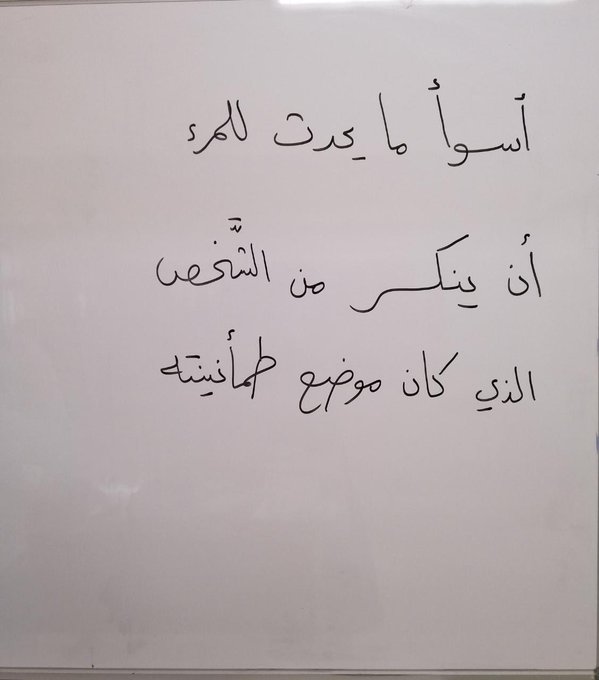 أسوأ ما يحدث للمرء
أن ينكسر من الشَّخص
الذي كان موضع طمأنينته